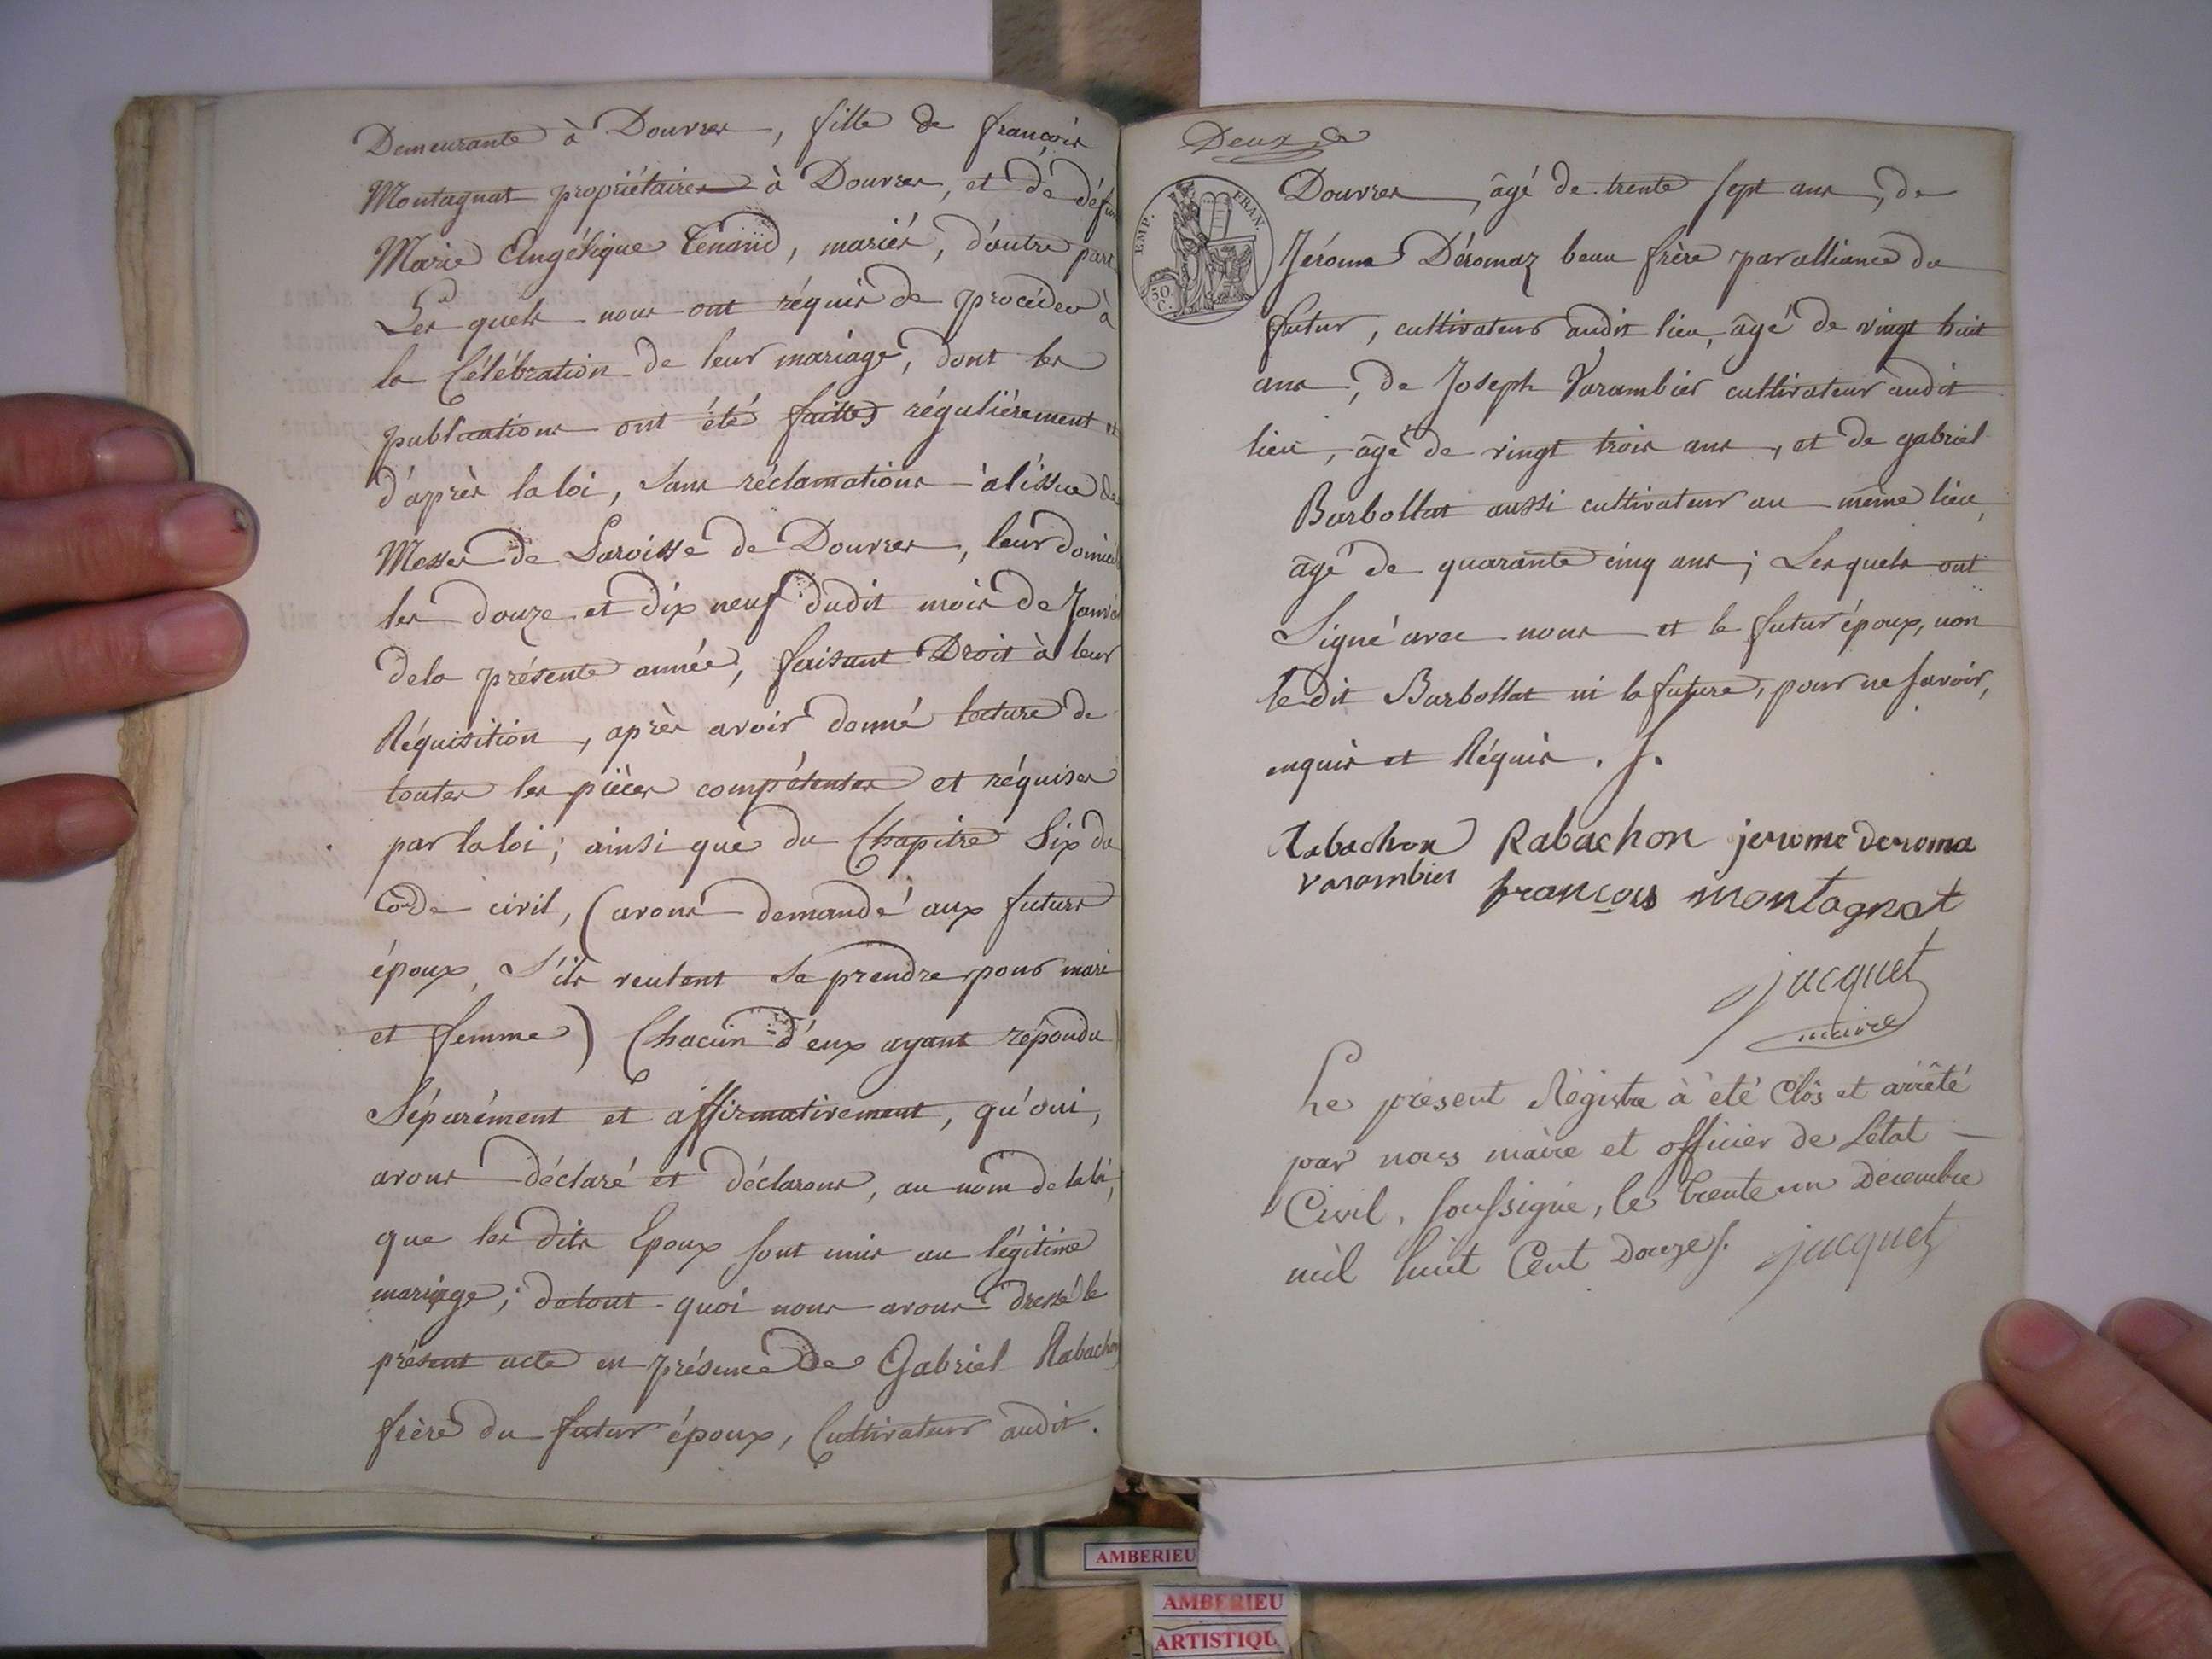 Demeurante à Douvres, fille de françois
Montagnat propriétaire à Douvres, et de défun
Marie Angélique Tenand, mariés, d'autre part
Les quels nous ont réquis de procéder à
la Célébration de leur mariage, dont les
publications ont été faittes régulièrement et
d'après la loi, sans réclamations à l'issue des
Messes de Paroisse de Douvres, leur domicil
les douze et dix neuf dudit mois de Janvier
de la présente année, faisant Droit à leur
Réquisition, après avoir donné lecture de
toutes les pièces compétentes et réquises
par la loi; ainsi que du Chapitre Six du
Code civil, (avons demandé aux futurs
époux, S'ils veulent se prendre pour mari
et femme) Chacun d'eux ayant répondu
Séparément et affirmativement, qu'oui,
avons déclaré et déclarons, au nom de la loi,
que les dits Epoux sont unis au légitime
mariage; de tout quoi nous avons dressé le
présent acte en présence de Gabriel Rabachon
frère du futur époux, Cultivateur audit.
Deux
IEMP. FRAN.
50 C.
Douvres, âgé de trente sept ans, de
Jérome Déromaz beau frère par alliance du
futur, cultivateur audit lieu, âgé de vingt huit
ans, de Joseph Varambier cultivateur audit
lieu, âgé de vingt trois ans, et de gabriel
Barbollat aussi cultivateur au même lieu,
âgé de quarante cinq ans; Les quels ont
Signé avec nous et le futur époux, non
le dit Barbollat ni la future, pour ne savoir,
enquis et Réquis. /.
Rabachon Rabachon jerome deroma
varambier françois montagnat
jacquet
maire
Le présent Régistre à été Clôs et arrêté
par nous maire et officier de Létat
Civil, soussigné, le trente un Décembre
mil huit Cent Douze /. jacquet
AMBERIEU
AMBERIEU
ARTISTIQU